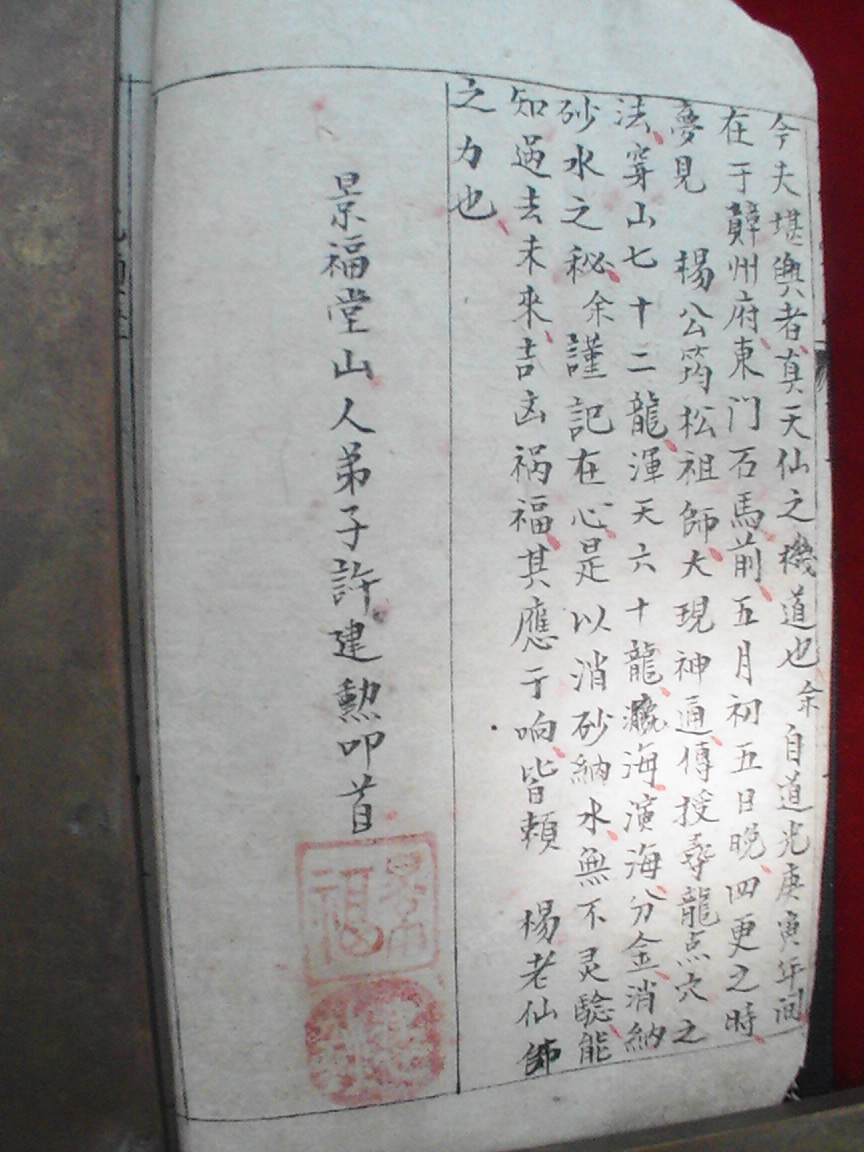 今夫堪輿者真天仙之機道也余自道光庚寅年间
在于贑州府東门石馬前五月初五日晚四更之時
夢見　楊公筠松祖師大現神通傳授尋龍点穴之
法穿山七十二龍渾天六十龍海演海分金消納
砂水之秘余謹記在心是以消砂納水無不灵騐能
知過去未來吉凶禍福其應于响皆頼　楊老仙師
之力也
景福堂山人弟子許建勲叩首
福